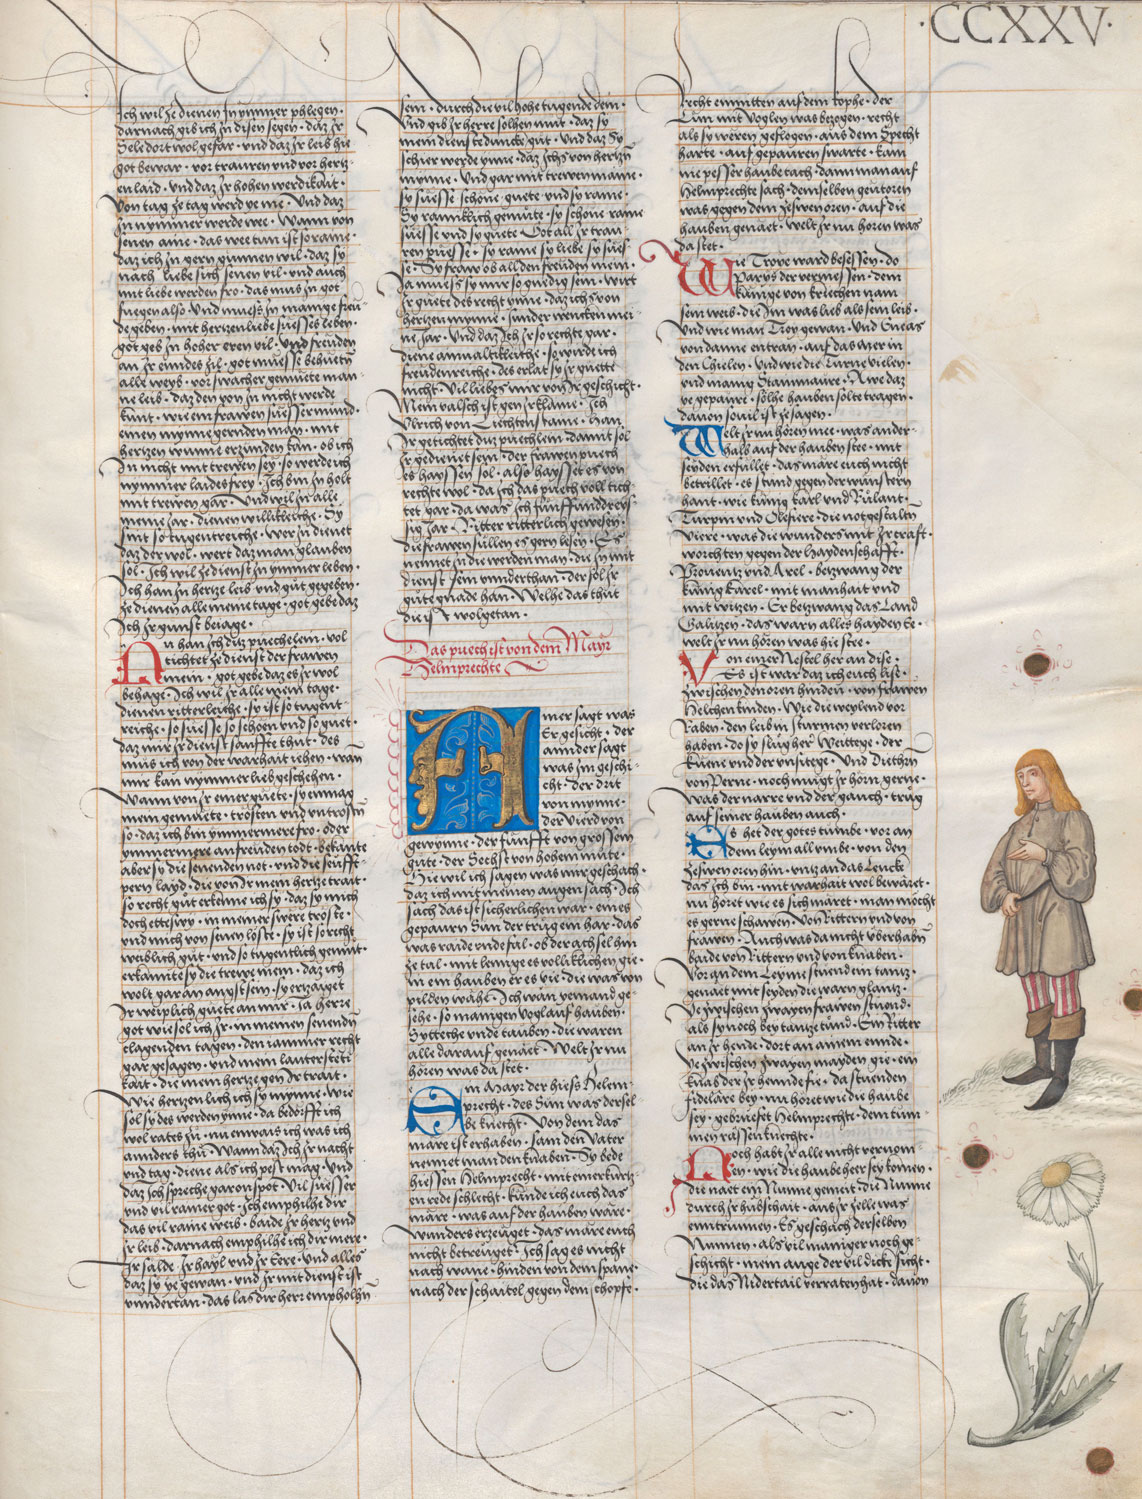 ·CCXXV·
Ich wil ze dienen Jn ymmer phlegen·
darnach gib ich Jn disen segen· daz Jr
Sele dort wol gefar· vnd daz Jr leib hie
got bewar· vor trauren vnd vor hertz-
en laid· vnd daz Jr hohen werdikait·
Von tag ze tag werd ye me· Vnd daz
Jn nymmer werde wee· Wann von
senen aine· das wee tun ist so raine·
daz ich Jn gern gunnen wil· daz sy
nach liebe sich senen vil· vnd auch
mit liebe werden fro· das mus Jn got
fuegen also· Vnd muess Jn manige freu-
de geben· mit hertzenliebe suesses leben·
got geb Jn hoher eren vil· Vnd freuden
an Jr enndes zil· got muesse behuetn
alle weyb· vor swacher gemuete man-
ne leib· daz den von Jn nicht werde
kunt· wie ein frawen suesser mund·
einen mynne gernden man· mit
hertzen wunne erzunden kan· ob ich
Jn nicht mit trewen sey· so werde ich
nymmer laides frey· Ich bin Jn holt
mit trewen gar· Vnd wil Jr alle
meine Jar· dienen willikleiche· Sy
sint so tugentreiche· wer Jn dienet
daz der wol· wert daz man glauben
sol· Ich wil ze dienst Jn ymmer leben·
Ich han Jn hertze leib vnd gut gegeben·
ze dienen alle meine tage· got gebe daz
Ich Jr gunst beiage·
Nu han Ich ditz puechelein· vol
tichtet ze dienst der frawen
mein· got gebe daz es Jr wol
behage· Ich wil Jr alle mein tage·
dienen ritterleiche· sy ist so tugent
reiche· so suesse so schoen vnd so guet·
daz mir Jr dienst sanffte thut· des
mus ich von der warhait iehen· wan
mir kan nymmer lieb geschehen·
Wann von Jr einer guete· sy ein mag
mein gemuete· trösten vnd vntrostn
so· daz ich bin ymmermere fro· oder
ymmermere an freuden todt· bekante
aber sy die senenden not· vnd die seufft-
pern layd· die von Jr mein hertze trait·
so recht gut erkenne ich sy· daz sy mich
doch etteswy· in meiner swere troste·
vnd mich von senen loste· sy ist so recht
weiblich gut· vnd so tugentlich gemut·
erkannte sy die trewe mein· daz ich
wolt gar an angst sein· sy ertzaiget
Jr weiplich guete an mir· Ia herre
got wie sol ich Jr· in meinen senenden
clagenden tagen· den iammer recht
gar gesagen· vnd mein lauter steti
kait· die mein hertze gen Jr trait·
Wie hertzenlich ich sy mynne· Wie
sol sy des werden ynne· da bedörfft ich
wol rates zu· nu enwais ich was ich
annders thu· Wann daz Ich Jr nacht
vnd tag· diene als ich pest mag· Vnd
daz Ich spreche gar on spot· Vil suesser
vnd vil rainer got· Ich emphilhe dir
das vil raine weib· baide Jr hertz vnd
Jr leib· darnach emphilhe ich dir mere·
Jr sälde· Jr hayl vnd Jr Eere· Vnd alles
daz sy ye gewan· vnd Jr mit dienst ist
vndertan· das las dir herr empholhn
sein· durch die vil hohe tugende dein·
Vnd gib Jr herre solhen mut· daz sy
mein dienste duncke gut· Vnd daz Sy
schier werde ynne· daz Ichs von hertzn
mynne· Vnd gar mit trewen maine·
sy suesse schöne guete vnd sy raine·
Sy rainiklich gemute· sy schöne raine
suesse vnd sy guete Got all Jr trau
ren puesse· sy raine sy liebe sy sues-
se· Sy fraw ob all den freuden mein·
Ja muess sy mir so gnedig sein· wirt
Jr guete des recht ynne· daz ichs von
hertzen mynne· sunder wencken mei-
ne Jar· Vnd daz Ich Jr so rechte gar·
diene ann valtikleiche· so wirde ich
freudenreiche· des erlat sy Jr guette
nicht· Vil liebes mir von Jr geschicht·
Mein valsch ist gen Jr klaine· Ich
Vlrich von Liechtenstaine· Han
Jr getichtet ditz puechlein· damit sol
Jr gedienet sein· der frawen puech
es hayssen sol· also haysset es von
rechte wol· da Ich das puech voll tich-
tet gar· da was Ich fünffunddreys-
sig Jar· Ritter ritterlich gewesen·
die frawen sullen es gern lesen· Es
nennet Jn die werden man· die Jn mit
dienst sein vnnderthan· der sol Jr
gute gnade han· Welhe das thut
die ist wolgetan·
Das puech ist von dem Mayr
Helmprechte
Ainer sagt was
Er gesicht· der
annder sagt
was Jm geschi-
cht· der drit
von mynne·
der Vierd von
gewynne· der fünfft von grossem
gute· der Sechst von hohem mute·
Hie wil ich sagen was mir geschach·
daz ich mit meinen augen sach· Ich
sach das ist sicherlichen war· eines
gepaurn Sun der trug ein har· das
was raide vnd fal· ob der achsel hin
ze tal· mit lenge es volliklichen gie·
In ein hauben er es vie· die was von
pilden wähe· Ich wän yemand ge-
sehe· so manigen vogl auf hauben·
Sytteche vnde tauben· die waren
alle darauf genäet· Welt Jr nu
hören was da stet·
Ein Mayr der hiess Helm-
precht· des Sun was dersel
be knecht· Von dem das
märe ist erhaben· sam den Vater
nennet man den knaben· Sy bede
hiessen Helmprecht· mit einer kurtz-
en rede schlecht· künde ich euch das
märe· was auf der hauben wäre·
wunders erzeuget· das märe euch
nicht betreuget· Ich sag es nicht
nach wane· hinden von dem spane·
nach der schaitel gegen dem schopfe·
Recht enmitten auf dem kophe· der
Lün mit Voglen was bezogen· recht
als sy weren geflogen· aus dem Specht
harte· auf gepauren swarte· kam
nie pesser haube tach· dann man auf
Helmprechte sach· demselben geutoren
was gegen dem zeswen oren· auf die
hauben genaet· welt Jr nu horen was
da stet·
Wie Troye ward besessen· do
Parys der vermessen· dem
künige von kriechen nam
sein weib· die Jm was lieb als sein leib·
Vnd wie man Troy gewan· Vnd Eneas
von danne entran· auf das mer in
den Chielen· Vnd wie die Türne vielen·
vnd manig Stainmaure· Awe daz
ye gepaure· solhe hauben solte tragen·
dauon so uil ist ze sagen·
Welt Jr nu hören mee· was ander-
halb auf der hauben stee· mit
seyden erfüllet· das märe euch nicht
betrillet· es stund gegen der winstern
hant· wie künig karl vnd Rulant·
Turpin vnd Olefiere· die notgestaltn
Viere· was die wunders mit Jr craft·
worchten gegen der Haydenschafft·
Prouentz vnd Arel· betzwang der
künig karel· mit manhait vnd
mit witzen· Er betzwang das Land
Galitzen· das warn alles hayden Ee·
welt Jr nu hören was hie stee·
Von einer Nestel her an dise·
Es ist war daz ich euch lise·
zwischen den oren hinden· von frawen
Helchen kinden· Wie die weylend vor
Raben· den leib in sturmen verloren
haben· do sy slug her Weittege· der
küene vnd der vnsitege· Vnd Diethn
von Perne· noch mugt Jr horn gerne·
Was der narre vnd der gauch· trug
auf seiner hauben auch·
Es het der gotes tumbe· vor an
dem leym all vmbe· von den
zeswen oren hin· vntz an das Lencke
das Ich bin· mit warhait wol bewäret·
nu höret wie es sich märet· man möcht
es gerne schawen· Von Rittern vnd von
frawen· Auch was da nicht vberhabn
baide von Rittern vnd von knaben·
Vor an dem Leyme stuend ein tantz·
genaet mit seyden die warn glantz·
Ye zwischen zwayen frawen stuond·
als sy noch bey tantze tund· Ein Ritter
an Jr hende· dort an ainem ennde·
Ye zwischen zwayen mayden gie· ein
knab der Jr hennde fie· da stuenden
fideläre bey· nu höret wie die haube
sey· gebruefet Helmprechte· dem tum-
men rässen knechte·
Noch habt Jr alle nicht vernom-
en· wie die haube her sey komen·
die naet ein Nunne gemeit· die Nunne
durch Jr hübschait· aus Jr zelle was
entrunnen· Es geschach derselben
Nunnen· als vil maniger noch ge-
schicht· mein auge der vil dicke sicht·
die das Nidertail verraten hat· dauon